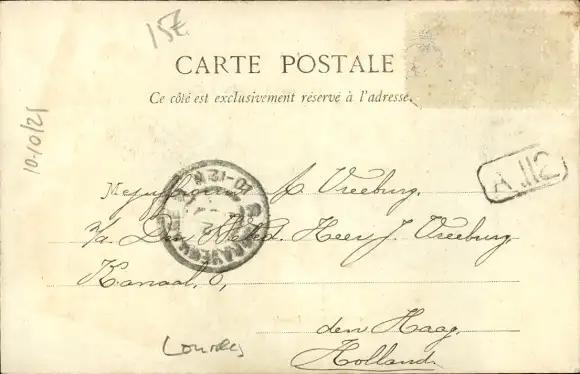 15£
CARTE POSTALE
Ce côté est exclusivement réservé à l'adresse.
10/10/21
A 112
Mejuffrouw A. Vreeburg.
p/a. Den Heer J. Vreeburg
Kanaal, 6,
den Haag.
Holland.
Lourdes